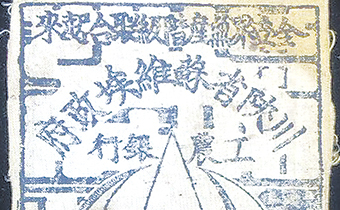 全世界無產階級聯合起來
川陝省蘇維埃政府
工農銀行